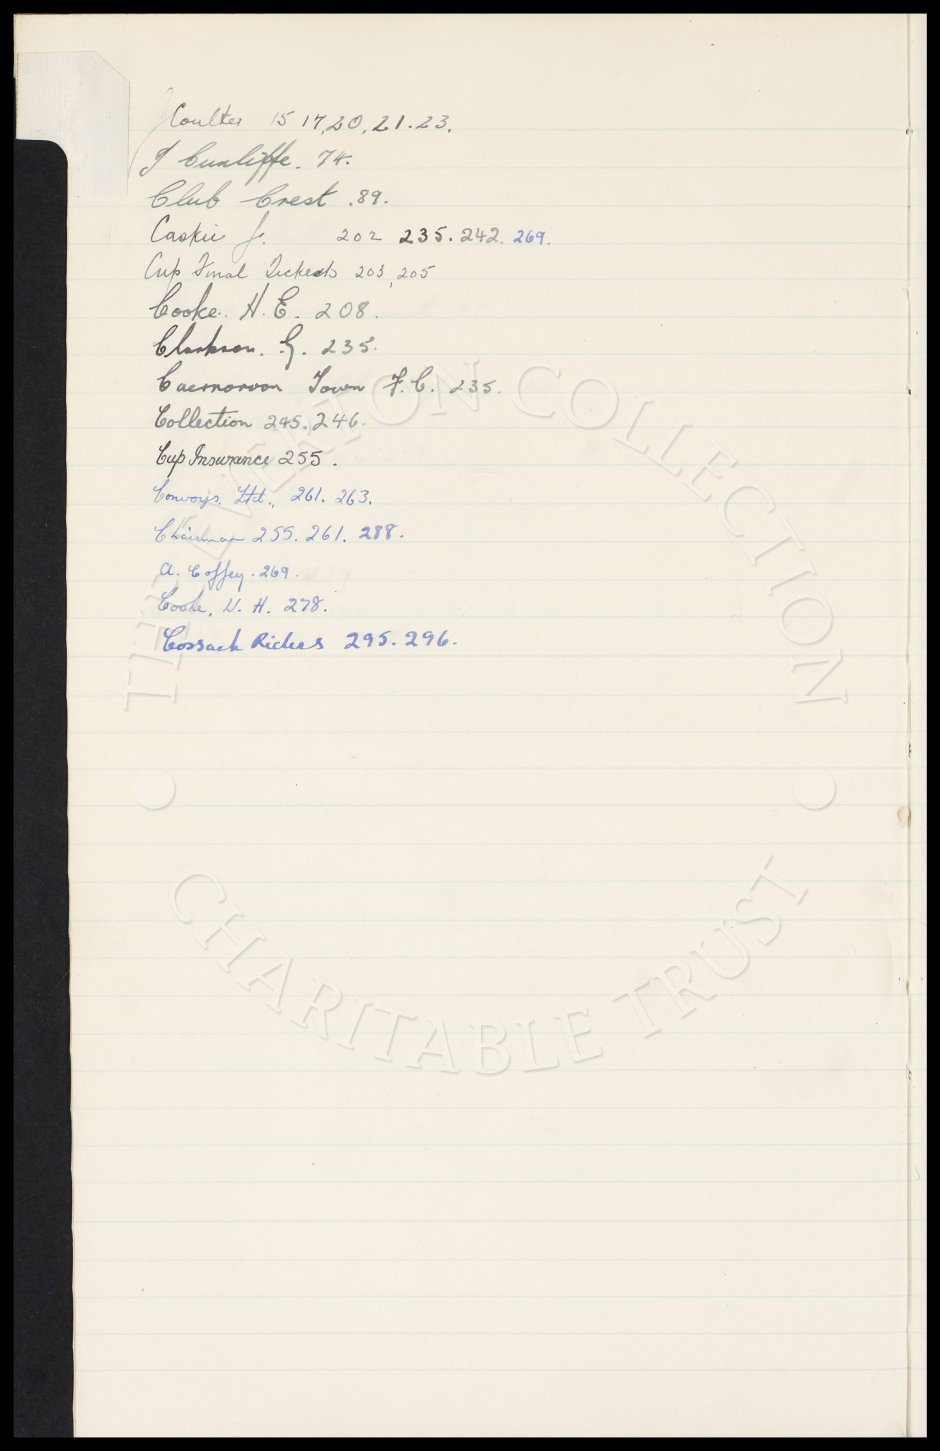 J Coulter 15 17, 20, 21. 23.
J Cunliffe. 74.
Club Crest. 89.
Caskie J. 202 235. 242. 269.
Cup Final Tickets 203, 205
Cooke. H. E. 208.
Clarkson. G. 235.
Caernarvon Town F. C. 235.
Collection 245. 246.
Cup Insurance 255.
Convoys. Ltd., 261. 263.
Chairman 255. 261. 288.
A. Coffey. 269.
Cooke, W. H. 278.
Cossack Riders 295. 296.
THE EVERTON COLLECTION
CHARITABLE TRUST